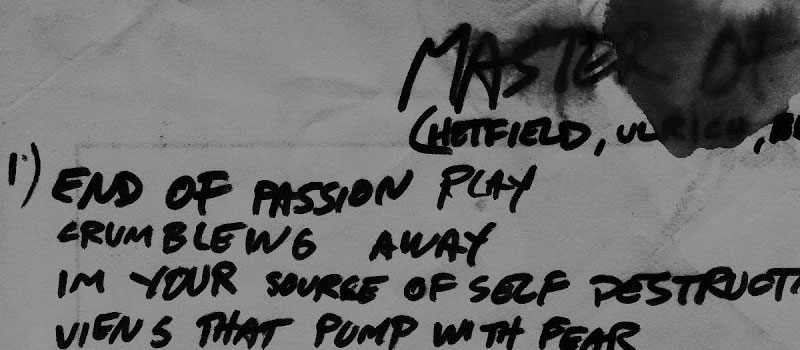 MASTER OF
(HETFIELD, ULRICH,
1) END OF PASSION PLAY
CRUMBLEWG AWAY
IM YOUR SOURCE OF SELF DESTRUCTI
VIENS THAT PUMP WITH FEAR